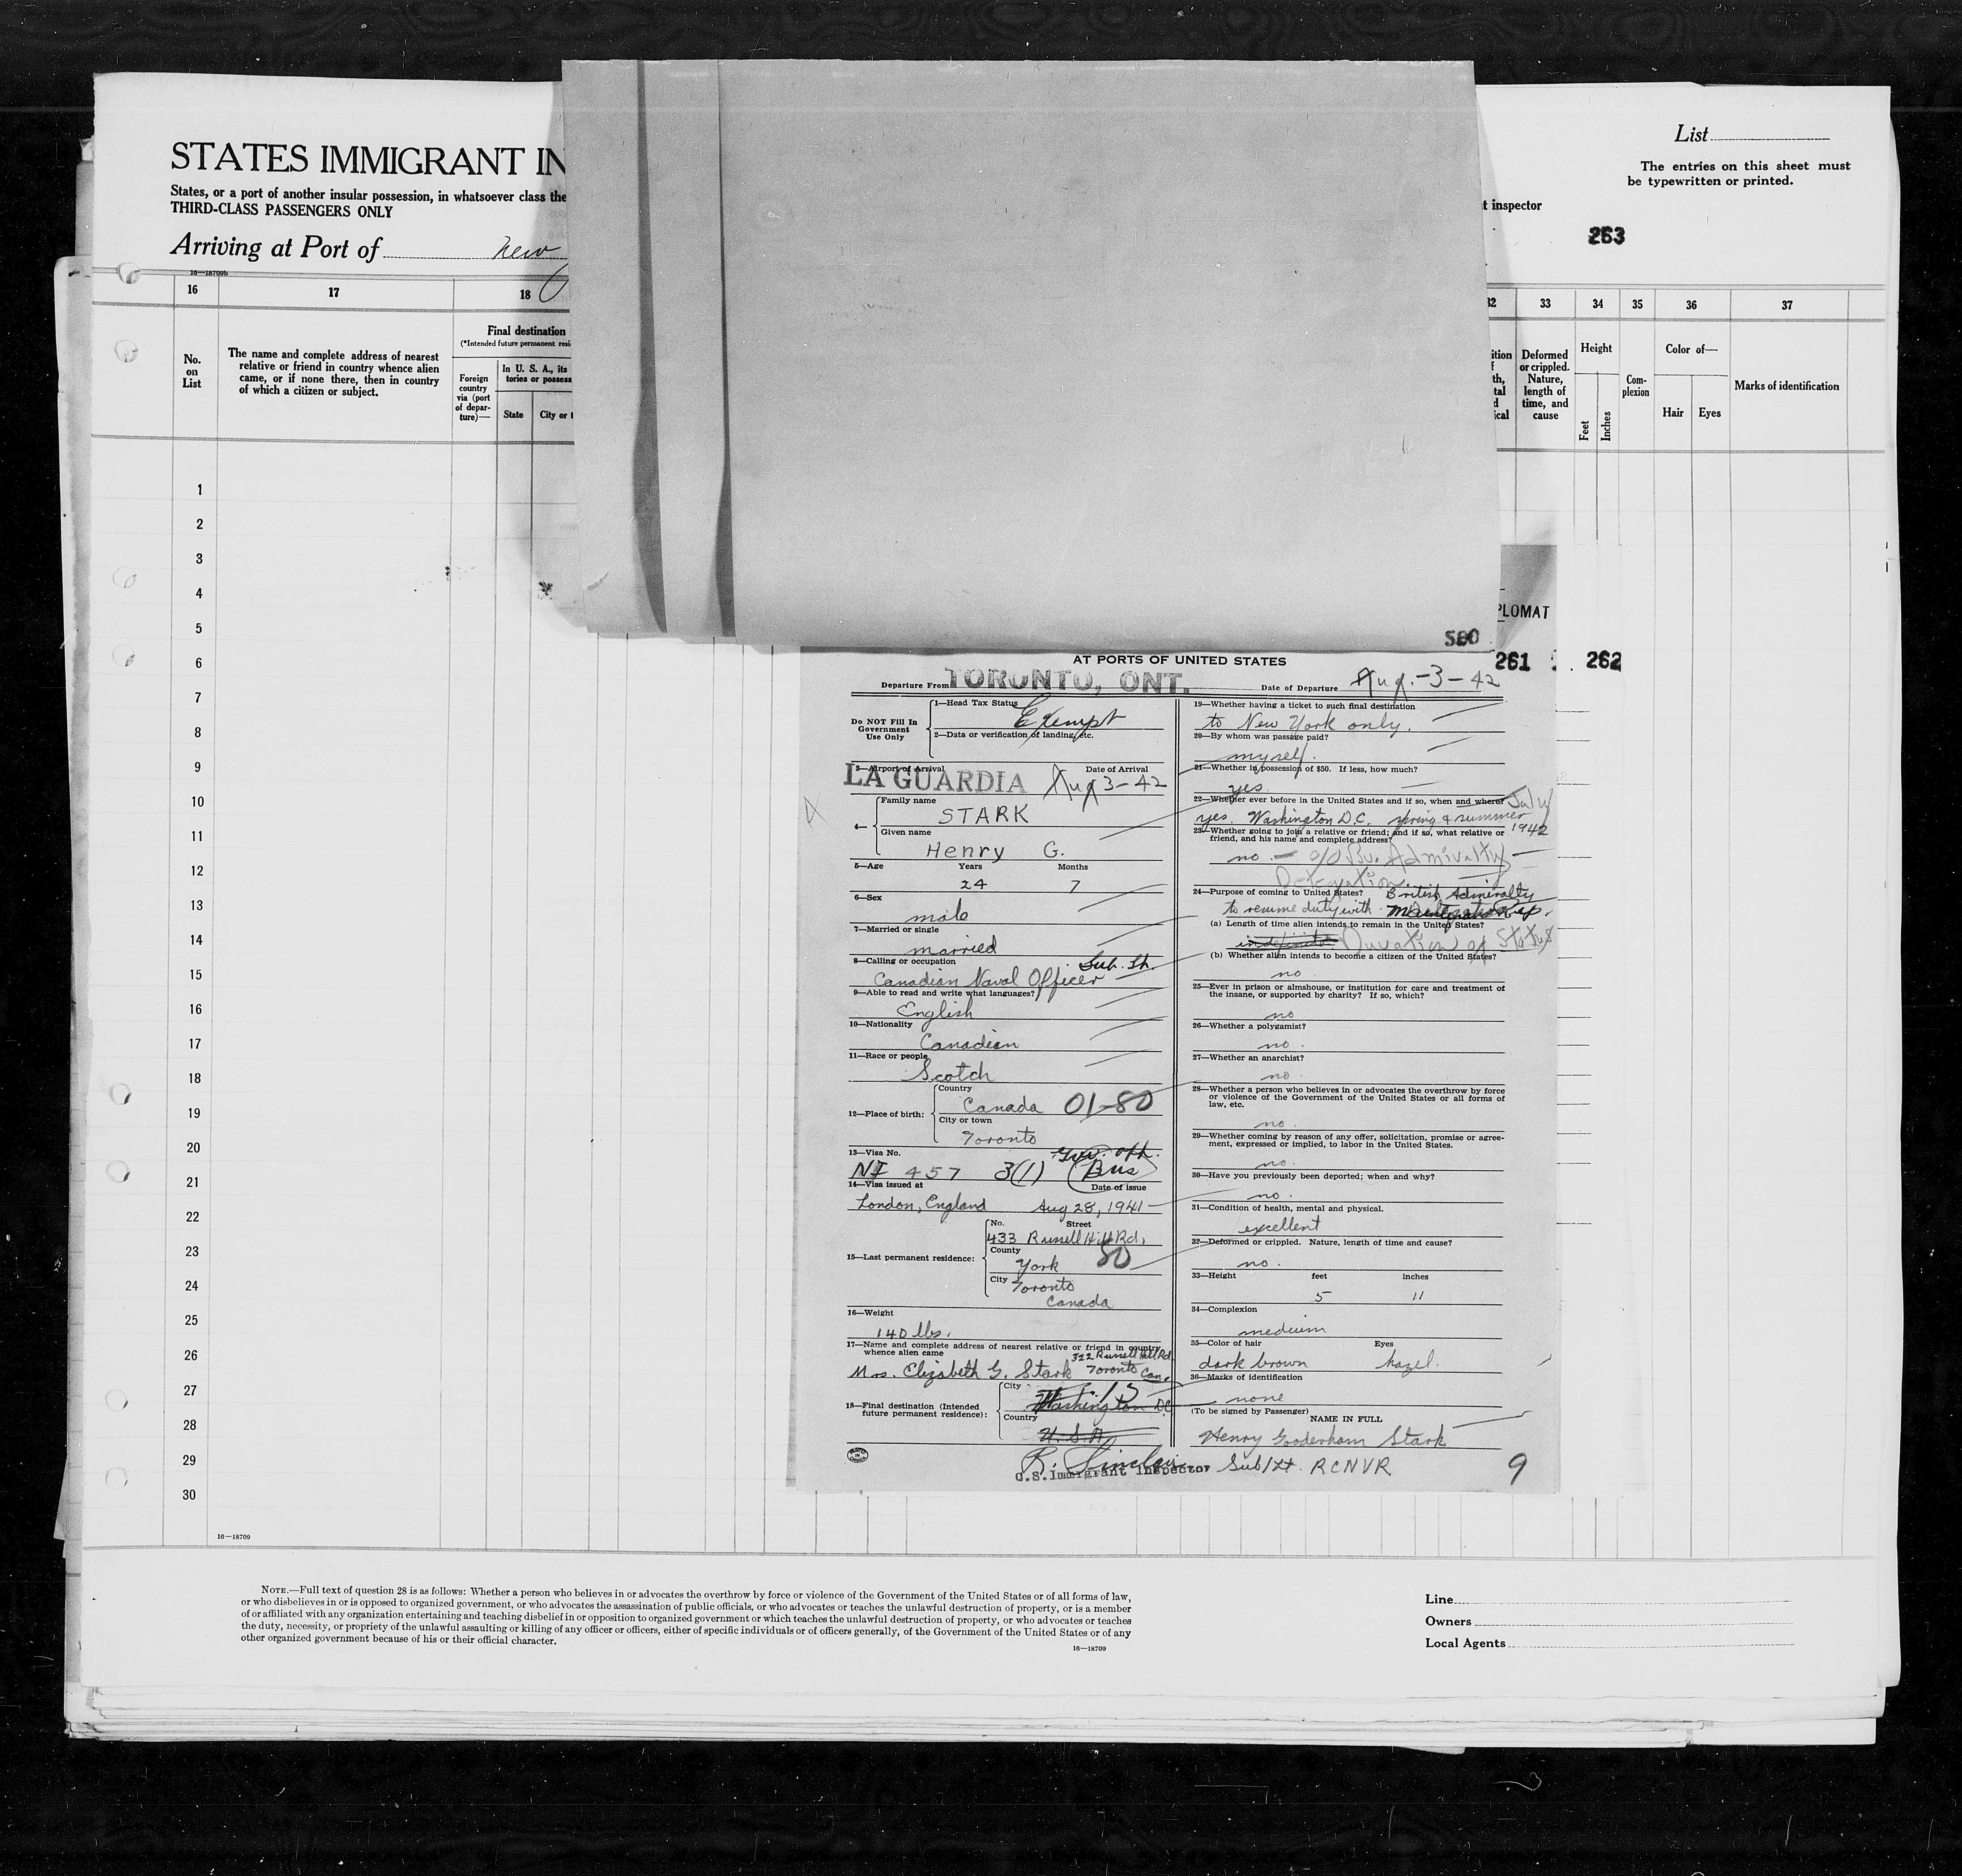 STATES IMMIGRANT IN
States, or a port of another insular possession, in whatsoever class the
THIRD-CLASS PASSENGERS ONLY
Arriving at Port of New
16—18709b
List
The entries on this sheet must
be typewritten or printed.
t inspector
263
16
17
18
32
33
34
35
36
37
No.
on
List
The name and complete address of nearest
relative or friend in country whence alien
came, or if none there, then in country
of which a citizen or subject.
Final destination
(*Intended future permanent resi
Foreign
country
via (port
of depar-
ture)—
In U. S. A., its
tories or possess
State
City or t
ition
f
th,
tal
d
ical
Deformed
or crippled.
Nature,
length of
time, and
cause
Height
Feet
Inches
Com-
plexion
Color of—
Hair
Eyes
Marks of identification
1
2
3
4
5
6
7
8
9
10
11
12
13
14
15
16
17
18
19
20
21
22
23
24
25
26
27
28
29
30
16—18709
PLOMAT
580
261
262
AT PORTS OF UNITED STATES
Departure From TORONTO, ONT.
Date of Departure Aug.-3-42
Do NOT Fill In
Government
Use Only
1—Head Tax Status
Exempt
2—Data or verification of landing, etc.
3—Airport of Arrival
Date of Arrival
LA GUARDIA Aug 3-42
4—
Family name
STARK
Given name
Henry G.
5—Age Years Months
24 7
6—Sex
male
7—Married or single
married
8—Calling or occupation Sub. Lt.
Canadian Naval Officer
9—Able to read and write what languages?
English
10—Nationality
Canadian
11—Race or people
Scotch
12—Place of birth:
Country
Canada 01-80
City or town
Toronto
13—Visa No. Gov. Off.
NI 457 3(1) (Bus)
14—Visa issued at Date of issue
London, England Aug 28, 1941
15—Last permanent residence:
No. Street
433 Russell Hill Rd,
County
York 80
City Toronto
Canada
16—Weight
140 lbs.
17—Name and complete address of nearest relative or friend in country
whence alien came 322 Russell Hill Rd
Mrs. Elizabeth G. Stark Toronto Can.
18—Final destination (Intended
future permanent residence):
City
Washington DC
Country
U.S.A.
R. Sinclair
U.S. Immigrant Inspector
19—Whether having a ticket to such final destination
to New York only.
20—By whom was passage paid?
myself.
21—Whether in possession of $50. If less, how much?
yes
22—Whether ever before in the United States and if so, when and where? July
yes. Washington D.C. spring & summer 1942
23—Whether going to join a relative or friend; and if so, what relative or
friend, and his name and complete address?
no. — c/o Br. Admiralty
Delegation
24—Purpose of coming to United States? British Admiralty
to resume duty with
(a) Length of time alien intends to remain in the United States?
indefinite. Duration of Status
(b) Whether alien intends to become a citizen of the United States?
no
25—Ever in prison or almshouse, or institution for care and treatment of
the insane, or supported by charity? If so, which?
no
26—Whether a polygamist?
no.
27—Whether an anarchist?
no
28—Whether a person who believes in or advocates the overthrow by force
or violence of the Government of the United States or all forms of
law, etc.
no.
29—Whether coming by reason of any offer, solicitation, promise or agree-
ment, expressed or implied, to labor in the United States.
no.
30—Have you previously been deported; when and why?
no.
31—Condition of health, mental and physical.
excellent
32—Deformed or crippled. Nature, length of time and cause?
no.
33—Height feet inches
5 11
34—Complexion
medium
35—Color of hair Eyes
dark brown hazel.
36—Marks of identification
none
(To be signed by Passenger)
NAME IN FULL
Henry Gooderham Stark
Sub/Lt. RCNVR
9
NOTE.—Full text of question 28 is as follows: Whether a person who believes in or advocates the overthrow by force or violence of the Government of the United States or of all forms of law,
or who disbelieves in or is opposed to organized government, or who advocates the assassination of public officials, or who advocates or teaches the unlawful destruction of property, or is a member
of or affiliated with any organization entertaining and teaching disbelief in or opposition to organized government or which teaches the unlawful destruction of property, or who advocates or teaches
the duty, necessity, or propriety of the unlawful assaulting or killing of any officer or officers, either of specific individuals or of officers generally, of the Government of the United States or of any
other organized government because of his or their official character.
16—18709
Line
Owners
Local Agents